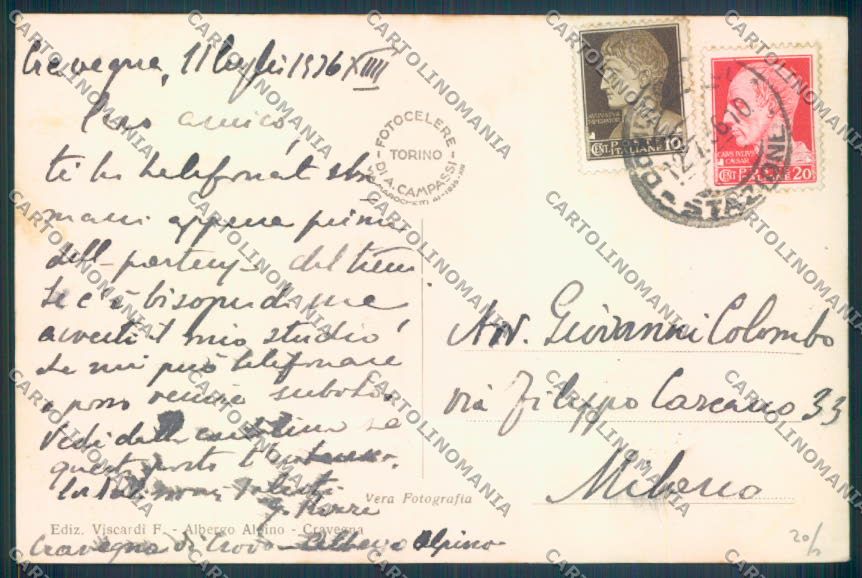 Cravegna, 11 luglio 1936 XIIII
Caro amico,
ti ho telefonato
mani appena prima
dell partenza del treno
Se c'è bisogno di me
avverti il mio studio,
se mi può telefonare
o posso venire subito.
Vedi dalla cartolina se
questo posto t'
Cravegna di Crodo Albergo Alpino
FOTOCELERE
TORINO
DI A. CAMPASSI
Vera Fotografia
Ediz. Viscardi F. - Albergo Alpino - Cravegna
CENT. POSTE ITALIANE 10
CAESAR
CENT. POSTE ITALIANE 20
STAZIONE
Avv. Giovanni Colombo
via Filippo Carcano 33
Milano
20/
CARTOLINOMANIA